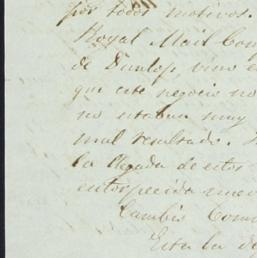 por todos motivos.
Royal Mail Com
de Dunlop, vino e
que este negocio no
no estaban muy
mal resultado.
la llegada de estos
entorpecida nuev
Cambio Com
Esta la de